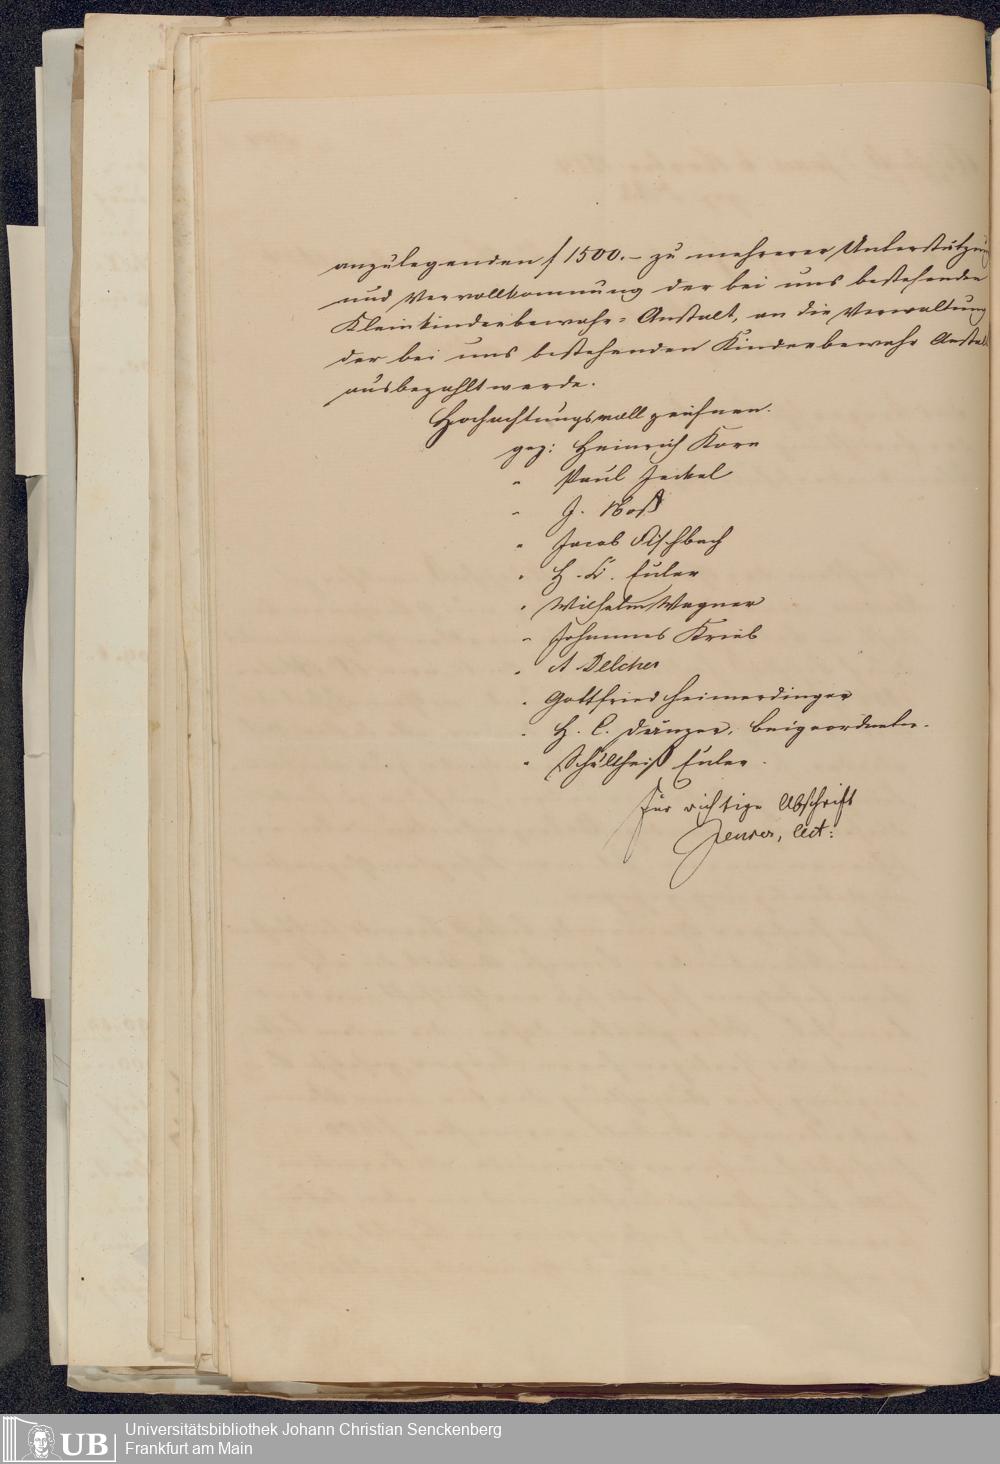 anzulegenden f 1500.- zu mehrerer Unterstützung
und Vervollkommnung der bei uns bestehenden
Kleinkinderbewahr-Anstalt, an die Verwaltung
der bei uns bestehenden Kinderbewahr Anstalt
ausbezahlt werde.
Hochachtungsvoll zeichnen.
gez: Heinrich Korn
" Paul Jeckel
" J. Noß
" Jacob Fischbach
" H. K. Euler
" Wilhelm Wagner
" Johannes Krieb
" A Delcher
" Gottfried Heimerdinger
" H. C. Dänzer, Beigeordneter.
" Schultheiß Euler.
Für richtige Abschrift
act:
UB
Universitätsbibliothek Johann Christian Senckenberg
Frankfurt am Main